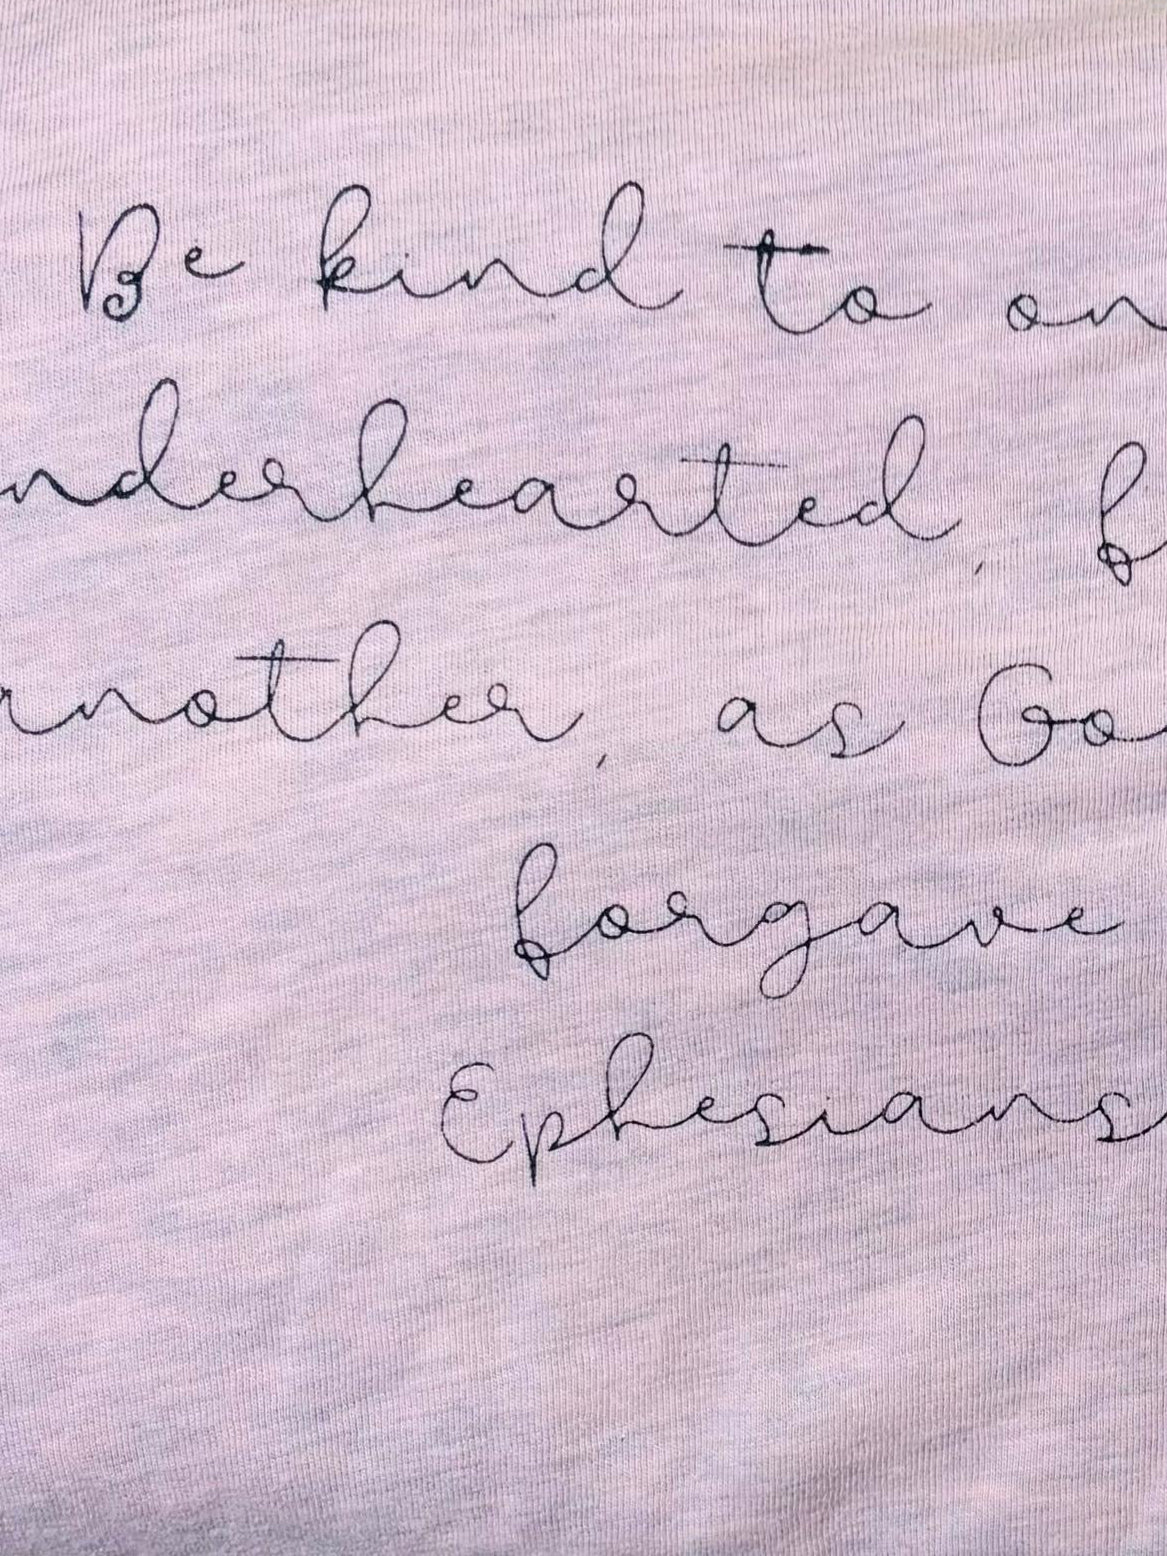 Be kind to on
nderhearted, f
another, as Go
forgave
Ephesians